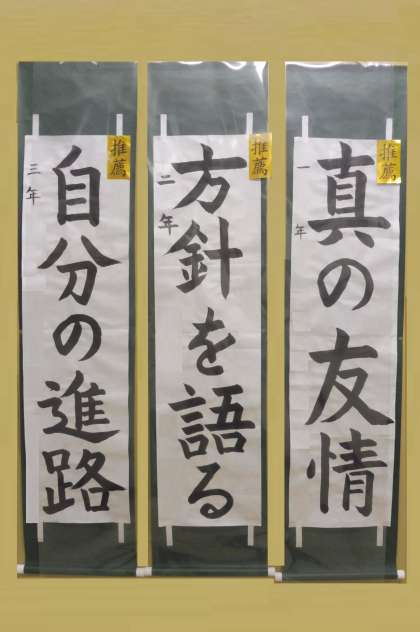 推薦
真の友情
一年
推薦
方針を語る
二年
推薦
自分の進路
三年